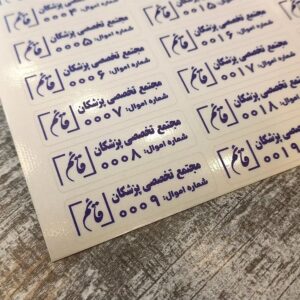 شماره اموال: ۰۰۰۴
شماره اموال: ۰۰۱۵
مجتمع تخصصی پزشکان
شماره اموال: ۰۰۰۵
قائم
مجتمع تخصصی پزشکان
شماره اموال: ۰۰۱۶
مجتمع تخصصی پزشکان
شماره اموال: ۰۰۰۶
قائم
مجتمع تخصصی پزشکان
شماره اموال: ۰۰۱۷
مجتمع تخصصی پزشکان
شماره اموال: ۰۰۰۷
قائم
مجتمع تخصصی پزشکان
شماره اموال: ۰۰۱۸
قائم
مجتمع تخصصی پزشکان
شماره اموال: ۰۰۰۸
قائم
شماره اموال: ۰۰۱۹
قائم
مجتمع تخصصی پزشکان
شماره اموال: ۰۰۰۹
قائم